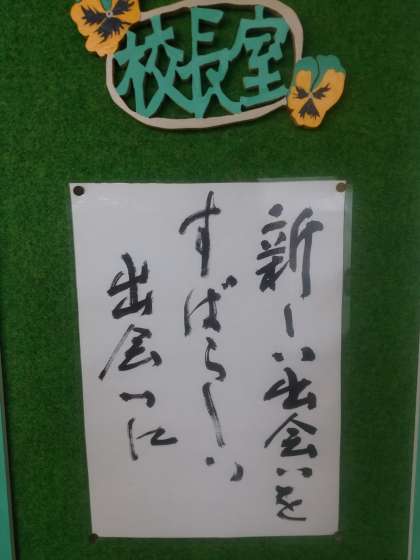 校長室
新しい出会いを
すばらしい
出会いに